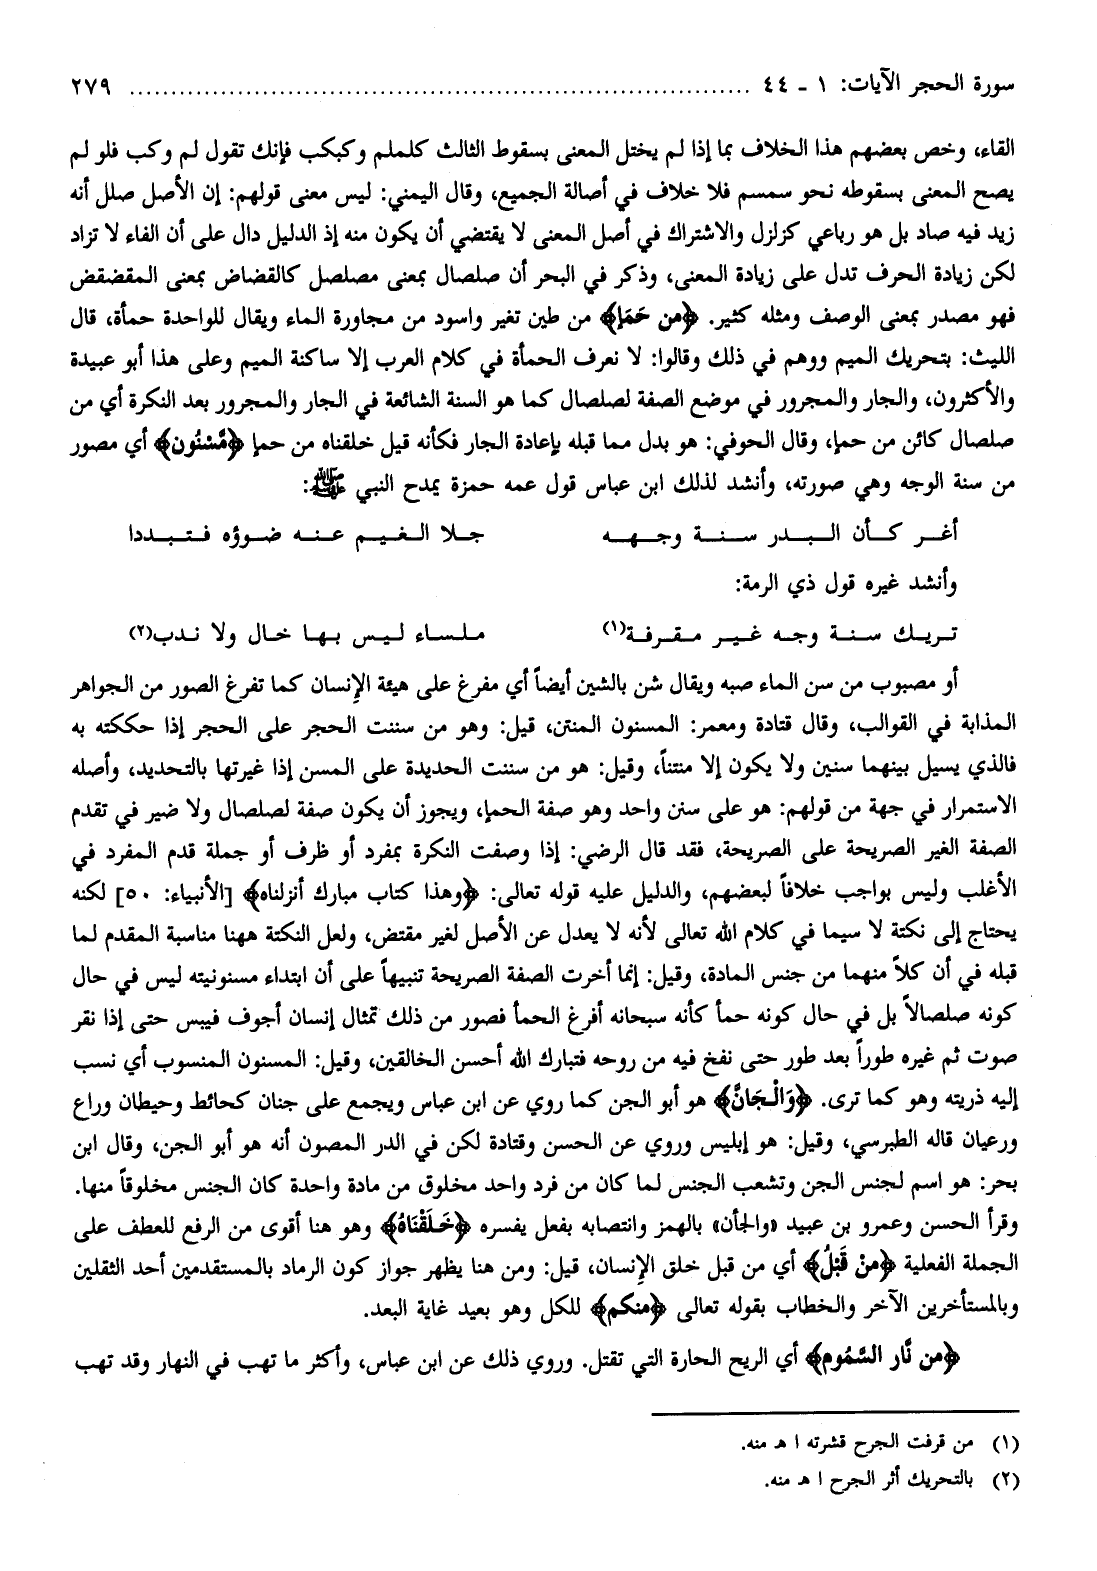 سورة الحجر الآيات: ١ ـ ٤٤ ................................................ ٢٧٩
القاء، وخص بعضهم هذا الخلاف بما إذا لم يختل المعنى بسقوط الثالث كلملم وكبكب فإنك تقول لم وكب فلو لم
يصح المعنى بسقوطه نحو سمسم فلا خلاف في أصالة الجميع، وقال اليمني: ليس معنى قولهم: إن الأصل صلل أنه
زيد فيه صاد بل هو رباعي كزلزل والاشتراك في أصل المعنى لا يقتضي أن يكون منه إذ الدليل دال على أن الفاء لا تزاد
لكن زيادة الحرف تدل على زيادة المعنى، وذكر في البحر أن صلصال بمعنى مصلصل كالقضاض بمعنى المقضقض
فهو مصدر بمعنى الوصف ومثله كثير. ﴿من حَمَإ﴾ من طين تغير واسود من مجاورة الماء ويقال للواحدة حمأة، قال
الليث: بتحريك الميم ووهم في ذلك وقالوا: لا نعرف الحمأة في كلام العرب إلا ساكنة الميم وعلى هذا أبو عبيدة
والأكثرون، والجار والمجرور في موضع الصفة لصلصال كما هو السنة الشائعة في الجار والمجرور بعد النكرة أي من
صلصال كائن من حمإ، وقال الحوفي: هو بدل مما قبله بإعادة الجار فكأنه قيل خلقناه من حمإ ﴿مَّسْنُون﴾ أي مصور
من سنة الوجه وهي صورته، وأنشد لذلك ابن عباس قول عمه حمزة يمدح النبي ﷺ:
أغـر كـأن الـبـدر سـنـة وجـهـه جـلا الـغـيـم عـنـه ضـوؤه فـتـبـددا
وأنشد غيره قول ذي الرمة:
تـريـك سـنـة وجـه غـيـر مـقـرفـة(١) مـلـسـاء لـيـس بـهـا خـال ولا نـدب(٢)
أو مصبوب من سن الماء صبه ويقال شن بالشين أيضاً أي مفرغ على هيئة الإنسان كما تفرغ الصور من الجواهر
المذابة في القوالب، وقال قتادة ومعمر: المسنون المنتن، قيل: وهو من سننت الحجر على الحجر إذا حككته به
فالذي يسيل بينهما سنين ولا يكون إلا منتناً، وقيل: هو من سننت الحديدة على المسن إذا غيرتها بالتحديد، وأصله
الاستمرار في جهة من قولهم: هو على سنن واحد وهو صفة الحمإ، ويجوز أن يكون صفة لصلصال ولا ضير في تقدم
الصفة الغير الصريحة على الصريحة، فقد قال الرضي: إذا وصفت النكرة بمفرد أو ظرف أو جملة قدم المفرد في
الأغلب وليس بواجب خلافاً لبعضهم، والدليل عليه قوله تعالى: ﴿وهذا كتاب مبارك أنزلناه﴾ [الأنبياء: ٥٠] لكنه
يحتاج إلى نكتة لا سيما في كلام الله تعالى لأنه لا يعدل عن الأصل لغير مقتض، ولعل النكتة ههنا مناسبة المقدم لما
قبله في أن كلاً منهما من جنس المادة، وقيل: إنما أخرت الصفة الصريحة تنبيهاً على أن ابتداء مسنونيته ليس في حال
كونه صلصالاً بل في حال كونه حمأ كأنه سبحانه أفرغ الحمأ فصور من ذلك تمثال إنسان أجوف فيبس حتى إذا نقر
صوت ثم غيره طوراً بعد طور حتى نفخ فيه من روحه فتبارك الله أحسن الخالقين، وقيل: المسنون المنسوب أي نسب
إليه ذريته وهو كما ترى. ﴿وَالْجَانَّ﴾ هو أبو الجن كما روي عن ابن عباس ويجمع على جنان كحائط وحيطان وراع
ورعيان قاله الطبرسي، وقيل: هو إبليس وروي عن الحسن وقتادة لكن في الدر المصون أنه هو أبو الجن، وقال ابن
بحر: هو اسم لجنس الجن وتشعب الجنس لما كان من فرد واحد مخلوق من مادة واحدة كان الجنس مخلوقاً منها.
وقرأ الحسن وعمرو بن عبيد «والجأن» بالهمز وانتصابه بفعل يفسره ﴿خَلَقْنَاهُ﴾ وهو هنا أقوى من الرفع للعطف على
الجملة الفعلية ﴿مِنْ قَبْلُ﴾ أي من قبل خلق الإنسان، قيل: ومن هنا يظهر جواز كون الرماد بالمستقدمين أحد الثقلين
وبالمستأخرين الآخر والخطاب بقوله تعالى ﴿منكم﴾ للكل وهو بعيد غاية البعد.
﴿من نَّار السَّمُوم﴾ أي الريح الحارة التي تقتل. وروي ذلك عن ابن عباس، وأكثر ما تهب في النهار وقد تهب
(١) من قرفت الجرح قشرته ا هـ منه.
(٢) بالتحريك أثر الجرح ا هـ منه.